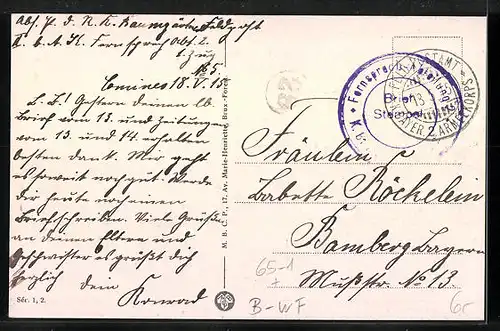 Abs. P. d. R. K. Baumgärtner Feldpost
K. b. A. K. Fernsprech Abt. 2.
1. Zug
No 5.
Comines 18. V. 15.
L. B.! Gestern deinen lb.
Brief vom 13. und Zeitungen
vom 13. und 14. erhalten
besten Dank. Mir geht
es soweit noch gut. Werde
dir heute noch einen
Brief schreiben. Viele Grüße
an deinen Eltern und
Geschwister es grüßt dich
herzlich dein
Konrad
Sér. 1, 2.
M. B. & C. P., 17, Av. Marie-Henriette, Brux.-Forest
Fernsprech-Abteilung
Brief
Stempel
2. ARMEEKORPS
Fräulein
Babette Röckelein
Bamberg Bayern
Mußstr. No 13.
65-1
B-WF